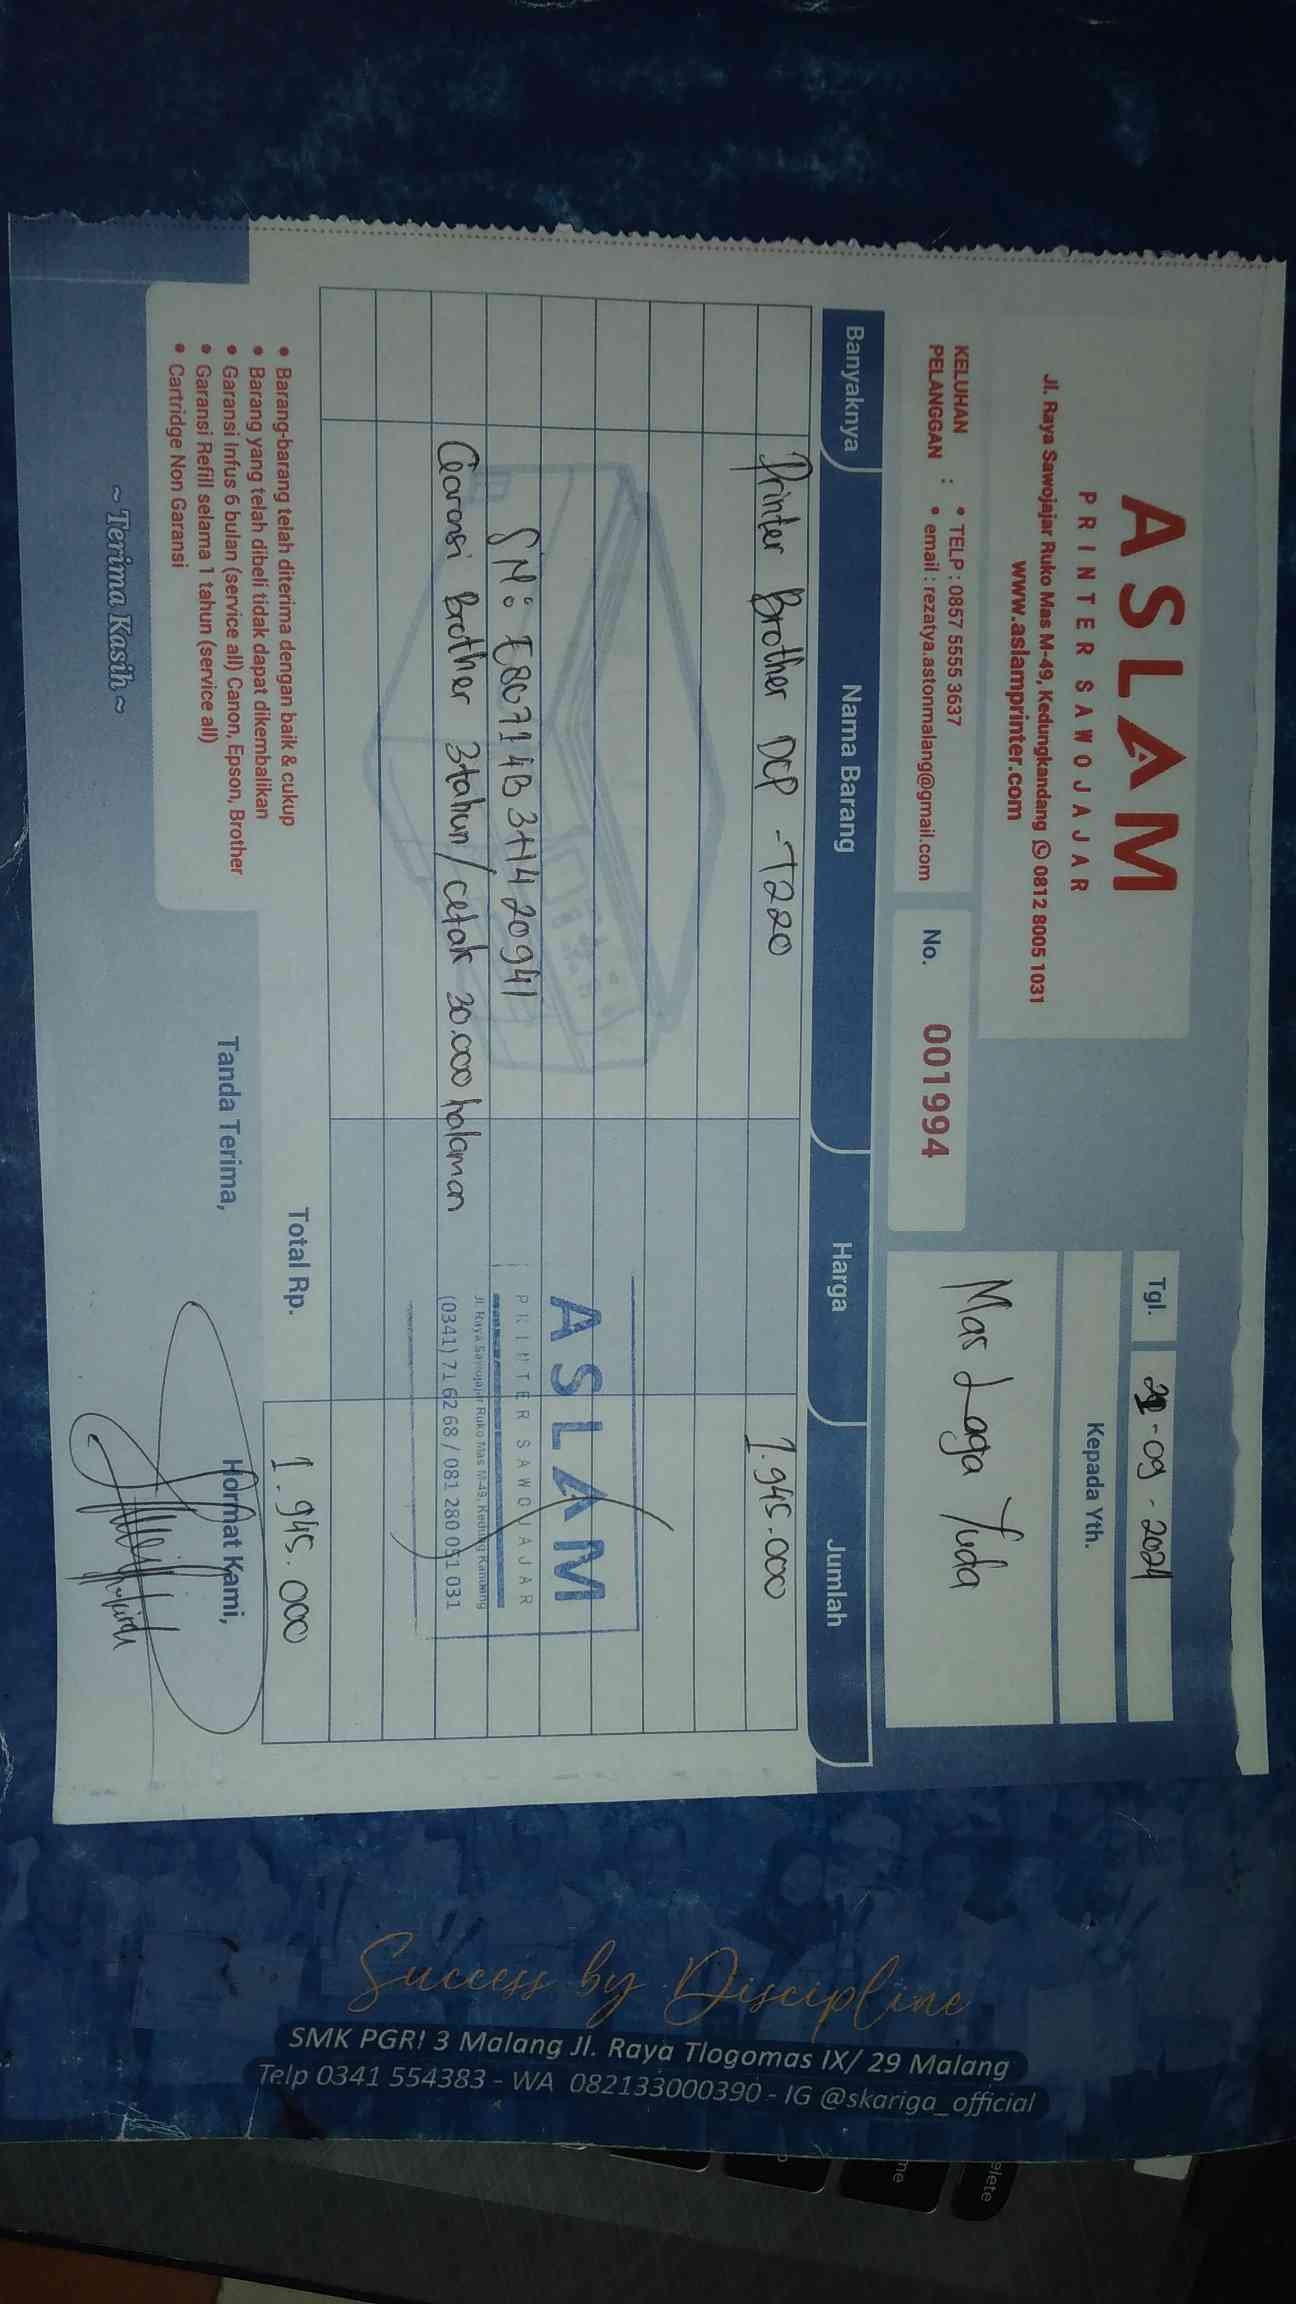 ASLAM
PRINTER SAWOJAJAR
Jl. Raya Sawojajar Ruko Mas M-49, Kedungkandang 0812 8005 1031
www.aslamprinter.com
KELUHAN PELANGGAN :
• TELP : 0857 5555 3637
• email : rezatya.astonmalang@gmail.com
No. 001994
Tgl. -09-2024
Kepada Yth.
Mas Laga Yuda
Banyaknya Nama Barang Harga Jumlah
Printer Brother DCP-T220 1.945.000
SN: E80714B3H420941
Garansi Brother 3tahun/cetak 30.000 halaman
ASLAM
PRINTER SAWOJAJAR
Jl. Raya Sawojajar Ruko Mas M-49, Kedung Kandang
(0341) 71 62 68 / 081 280 051 031
Total Rp. 1.945.000
• Barang-barang telah diterima dengan baik & cukup
• Barang yang telah dibeli tidak dapat dikembalikan
• Garansi Infus 6 bulan (service all) Canon, Epson, Brother
• Garansi Refill selama 1 tahun (service all)
• Cartridge Non Garansi
~ Terima Kasih ~
Tanda Terima,
Hormat Kami,
Success by Discipline
SMK PGRI 3 Malang Jl. Raya Tlogomas IX/ 29 Malang
Telp 0341 554383 - WA 082133000390 - IG @skariga_official
elete